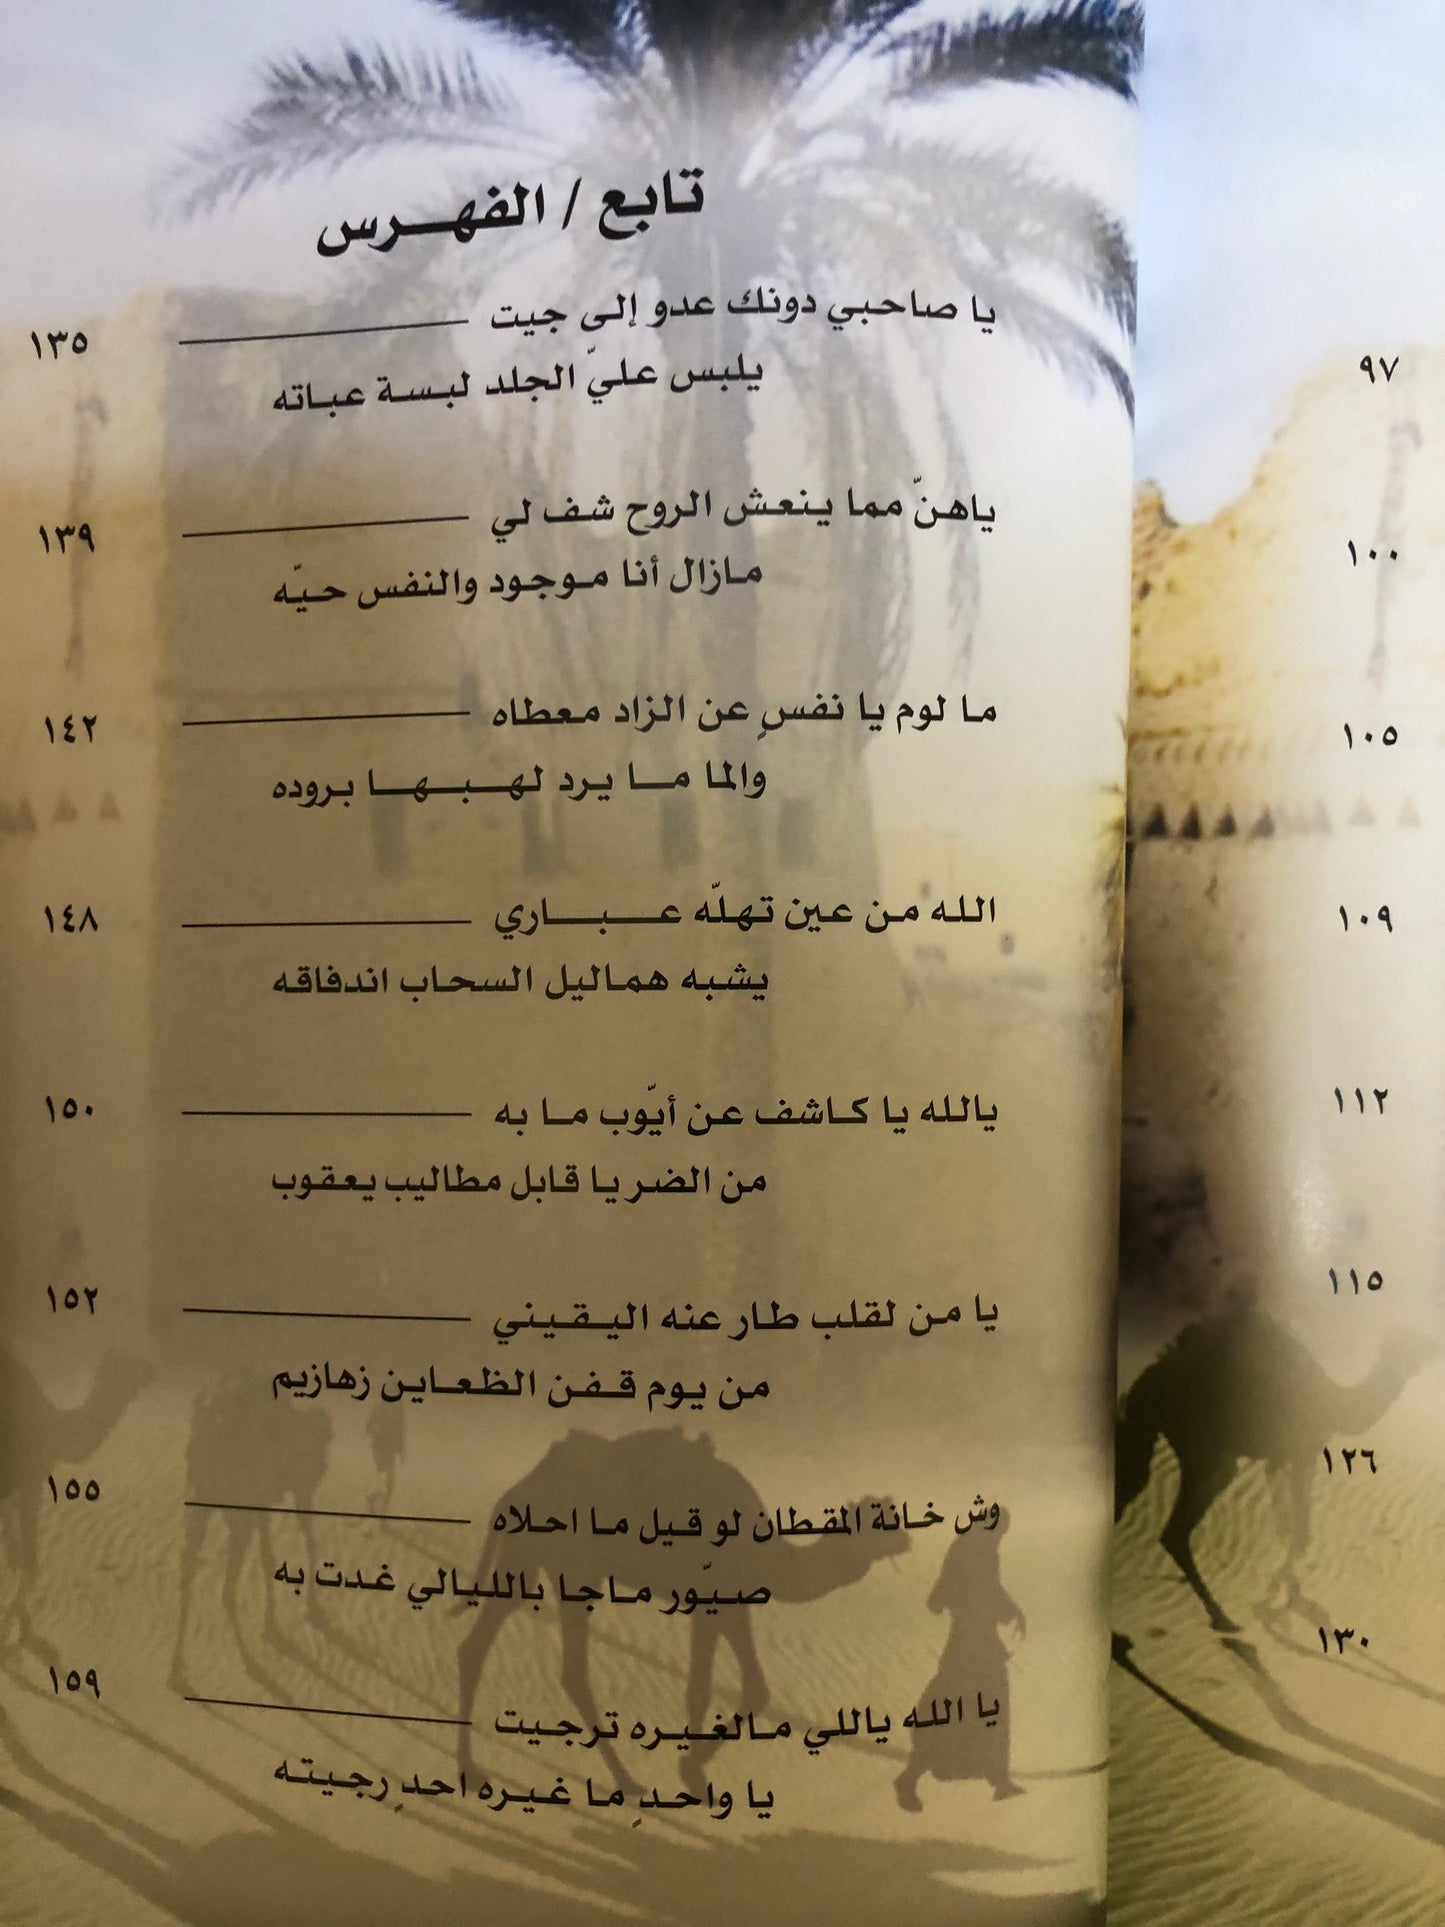 تابع / الفهرس
يا صاحبي دونك عدو إلى جيت ١٣٥
يلبس عليّ الجلد لبسة عباته
ياهنّ مما ينعش الروح شف لي ١٣٩
مازال أنا موجود والنفس حيّه
ما لوم يا نفسٍ عن الزاد معطاه ١٤٢
والما ما يرد لهبها بروده
الله من عين تهلّه عباري ١٤٨
يشبه هماليل السحاب اندفاقه
يالله يا كاشف عن أيّوب ما به ١٥٠
من الضر يا قابل مطاليب يعقوب
يا من لقلب طار عنه اليقيني ١٥٢
من يوم قفن الظعاين زهازيم
وش خانة المقطان لو قيل ما احلاه ١٥٥
صيّور ماجا بالليالي غدت به
يا الله ياللي مالغيره ترجيت ١٥٩
يا واحدٍ ما غيره احدٍ رجيته
٩٧
١٠٠
١٠٥
١٠٩
١١٢
١١٥
١٢٦
١٣٠